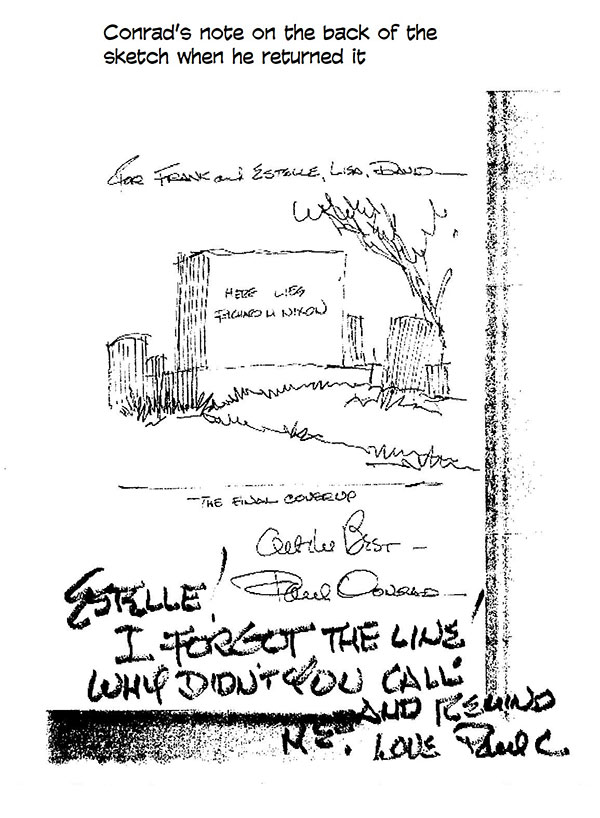 Conrad's note on the back of the
sketch when he returned it
FOR FRANK and ESTELLE, LISA, DAVID—
HERE LIES
RICHARD M NIXON
—THE FINAL COVERUP
All the Best —
Paul Conrad—
ESTELLE!
I FORGOT THE LINE!
WHY DIDN'T YOU CALL
AND REMIND
ME. LOVE Paul C.